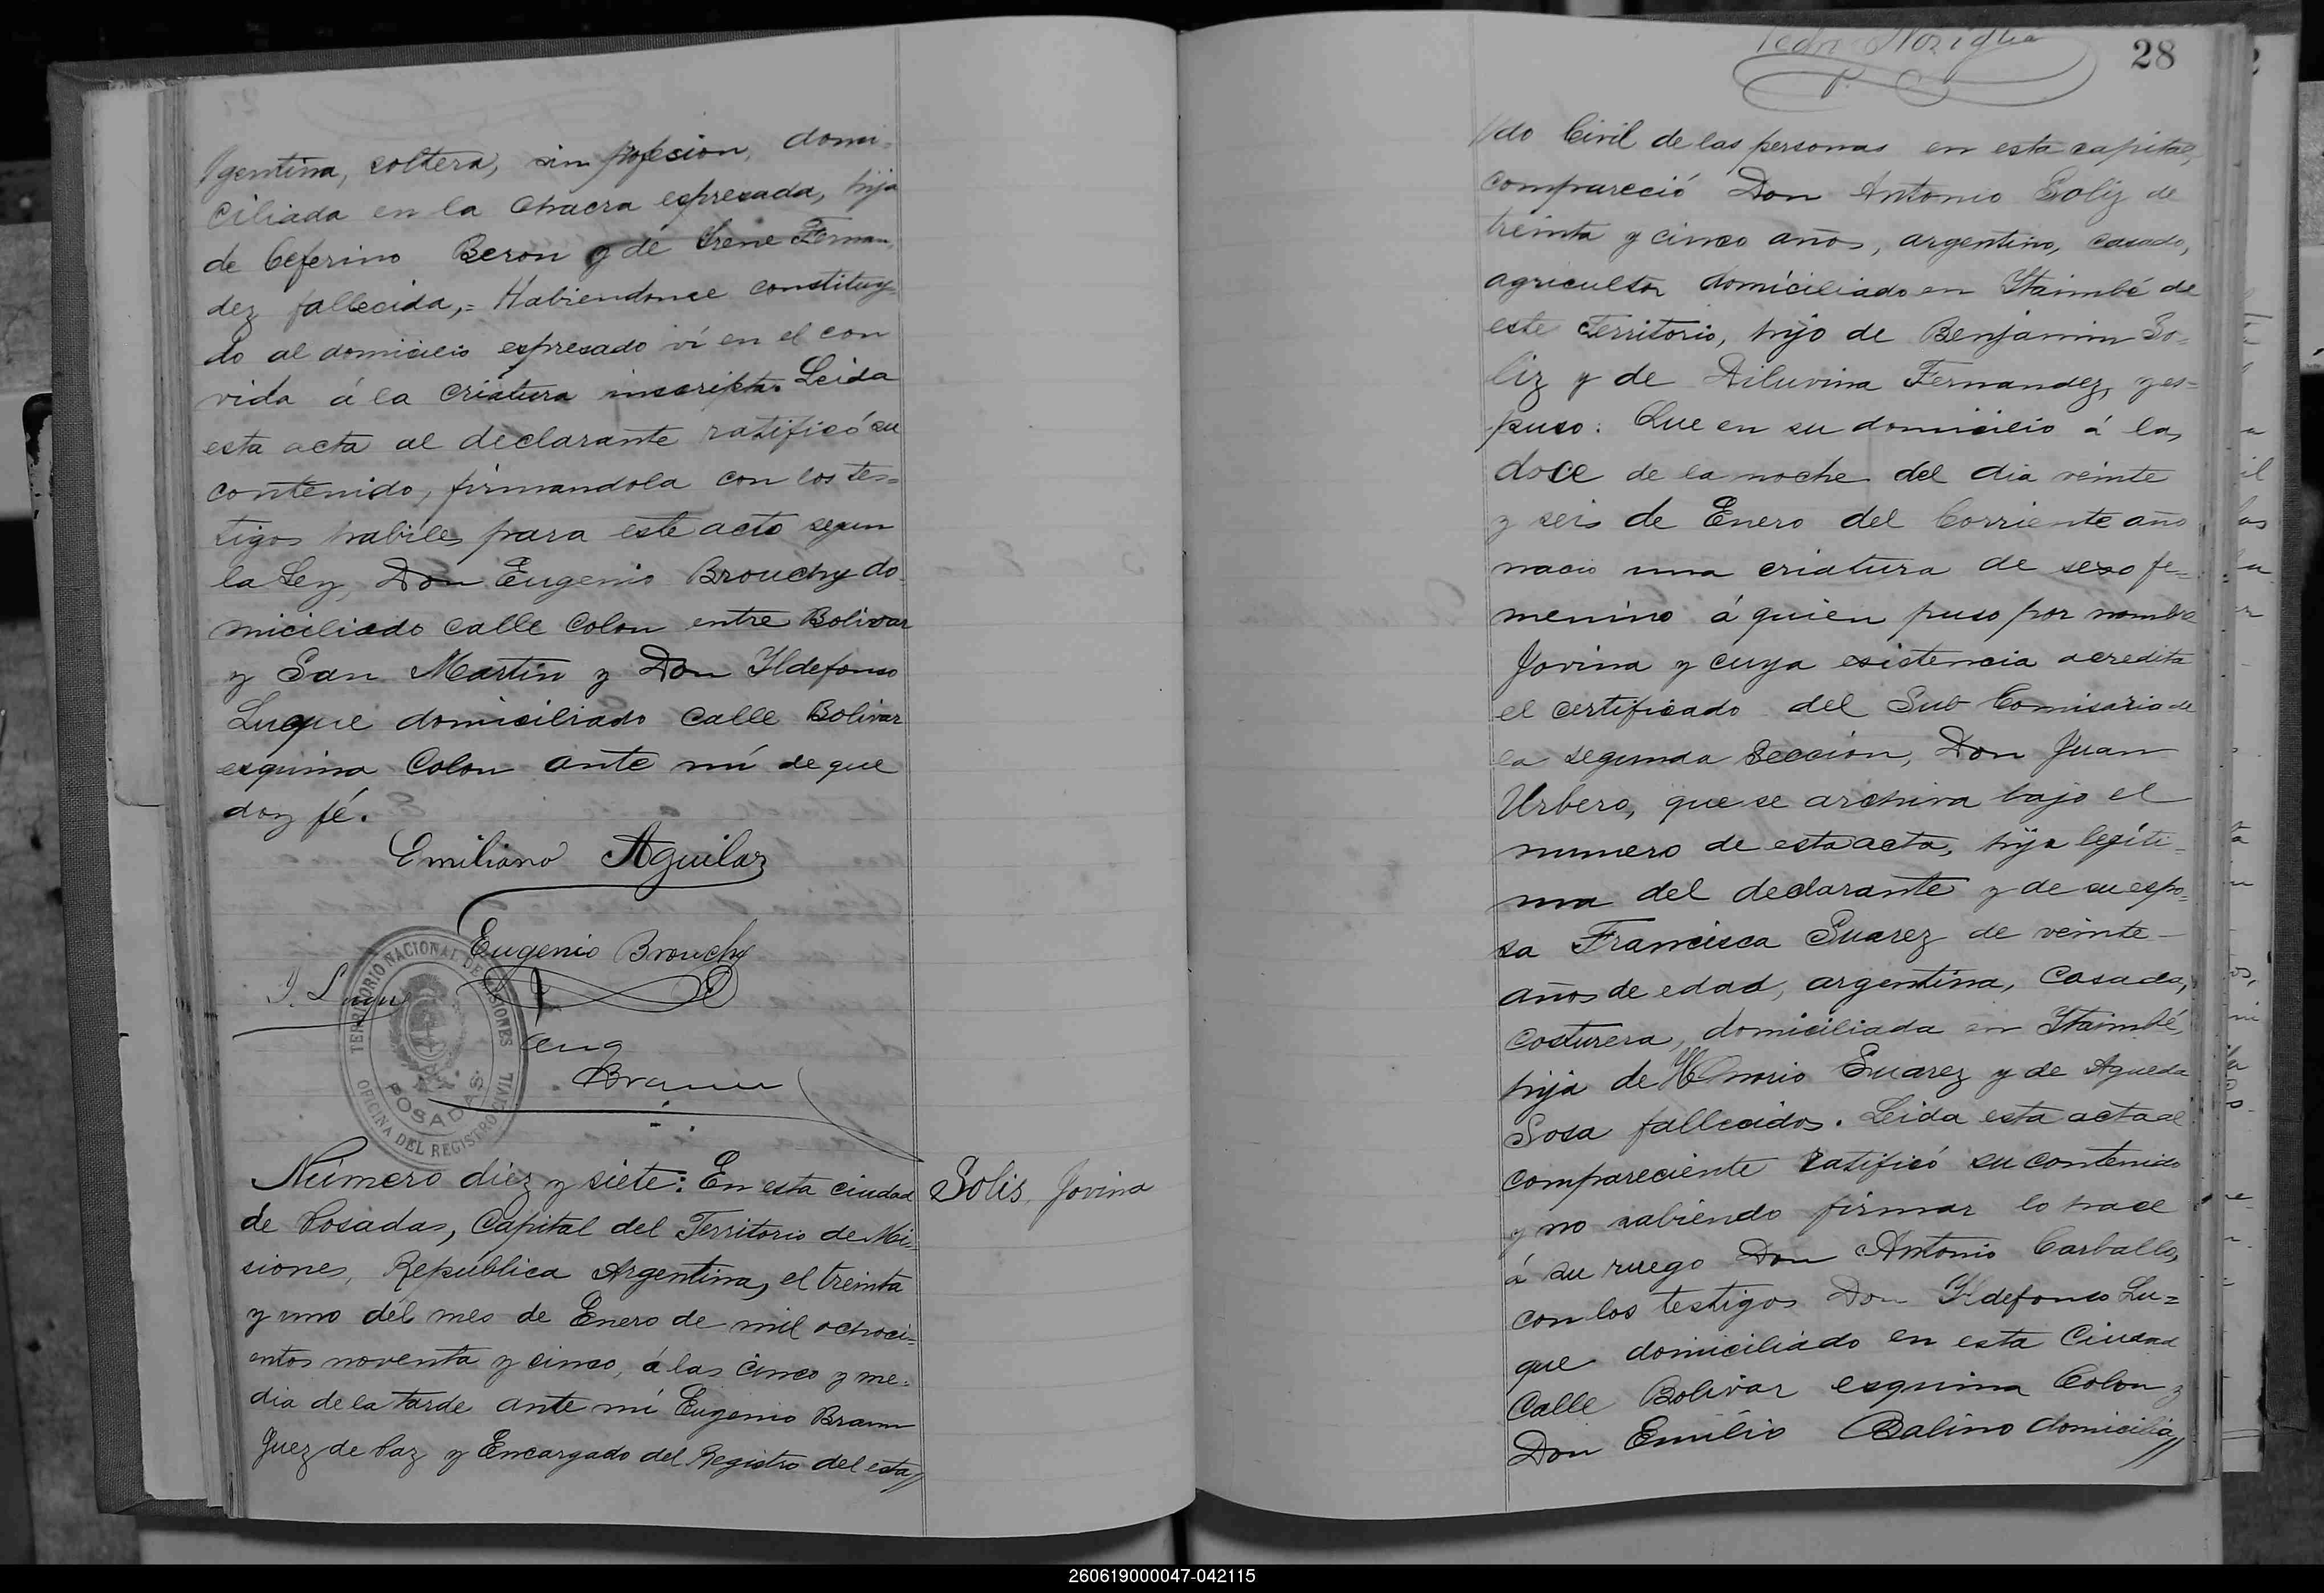 gentina, soltera, sin profesion, domi-
ciliada en la chacra espresada, hija
de Ceferino Beron y de Irene Fernan-
dez fallecida,= Habiendome constituy-
do al domicilio espresado ví en el con
vida á la criatura inscripta. Leida
esta acta al declarante ratificó su
contenido, firmandola con los tes=
tigos habiles para este acto segun
la Ley, Don Eugenio Brouchy do-
miciliado calle Colon entre Bolivar
y San Martin y Don Ildefonso
Luque domiciliado calle Bolivar
esquina Colon ante mí de que
doy fé.
Emiliano Aguilar
Eugenio Brouchy
I. Luque
Eug
Braun
TERRITORIO NACIONAL DE MISIONES
POSADAS
OFICINA DEL REGISTRO CIVIL
Número diez y siete: En esta ciudad
de Posadas, Capital del Territorio de Mi=
siones, República Argentina, el treinta
y uno del mes de Enero de mil ochoci=
entos noventa y cinco, á las cinco y me=
dia de la tarde ante mí Eugenio Braun
Juez de Paz y Encargado del Registro del esta//
Solis, Jovina
28
//do Civil de las personas en esta capital,
compareció Don Antonio Soliz de
treinta y cinco años, argentino, casado,
agricultor domiciliado en Itaimbé de
este Territorio, hijo de Benjamin So=
liz y de Diluvina Fernandez, y es=
puso: Que en su domicilio á las
doce de la noche del dia veinte
y seis de Enero del Corriente año
nació una criatura de sexo fe=
menino á quien puso por nombre
Jovina y cuya existencia acredita
el certificado del Sub Comisario de
la segunda Seccion, Don Juan
Urbero, que se archiva bajo el
numero de esta acta, hija legíti-
ma del declarante y de su espo=
sa Francisca Suarez de veinte
años de edad, argentina, casada,
costurera, domiciliada en Itaimbé,
hija de Honorio Suarez y de Agueda
Sosa fallecidos. Leida esta acta al
compareciente ratificó su contenido
y no sabiendo firmar lo hace
á su ruego Don Antonio Carballo,
con los testigos Don Ildefonso Lu=
que domiciliado en esta Ciudad
Calle Bolivar esquina Colon y
Don Emilio Balino domicilia//
260619000047-042115